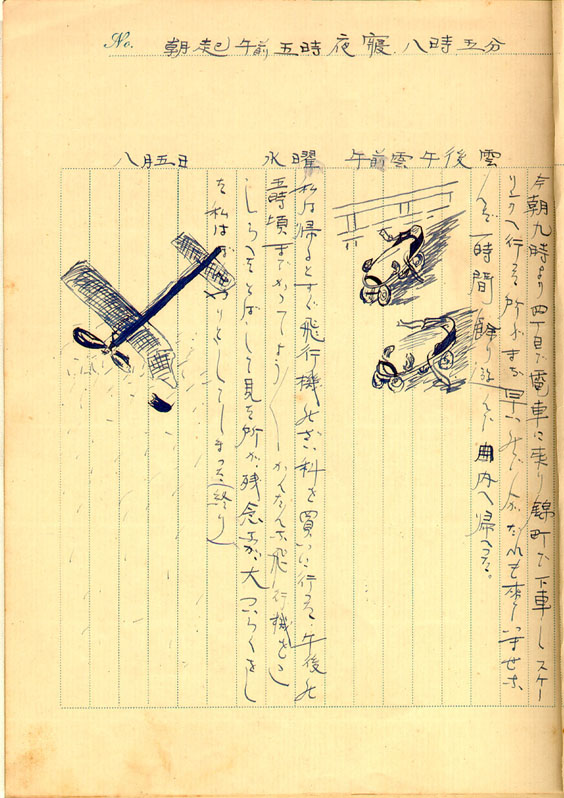 No.
朝起午前五時夜寝.八時五分
八月五日 水曜 午前雲午後雲
今朝九時より四丁目で電車に乗り錦町で下車しスケー
へ行った所がまだ早いので
一時間餘り遊んだ
内へ帰った。
私は帰るとすぐ飛行機のざい料を買いに行った.午後の
五時頃までかってよう〱かんたんな飛行機をこ
しらへをとばして見た所が、残念なが大つらくをし
た私はぼ やりとしてしまった(終り)